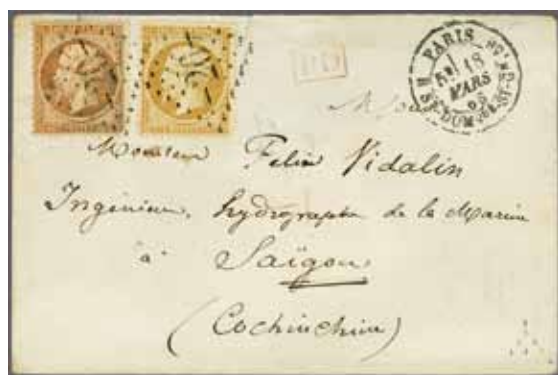 20
20
PD
PARIS
18
MARS
65
R. ST-DOM-QUE-ST-GN
Monsieur
Felix Vidalin
Ingénieur, hydrographe de la Marine
à
Saïgon
(Cochinchine)